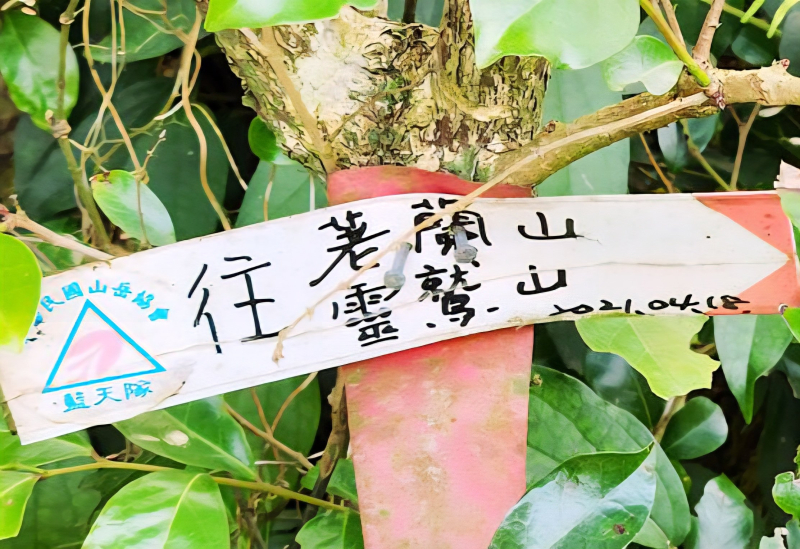 華民國山岳協會
藍天隊
往
荖蘭山
靈鷲山
2021.04.18